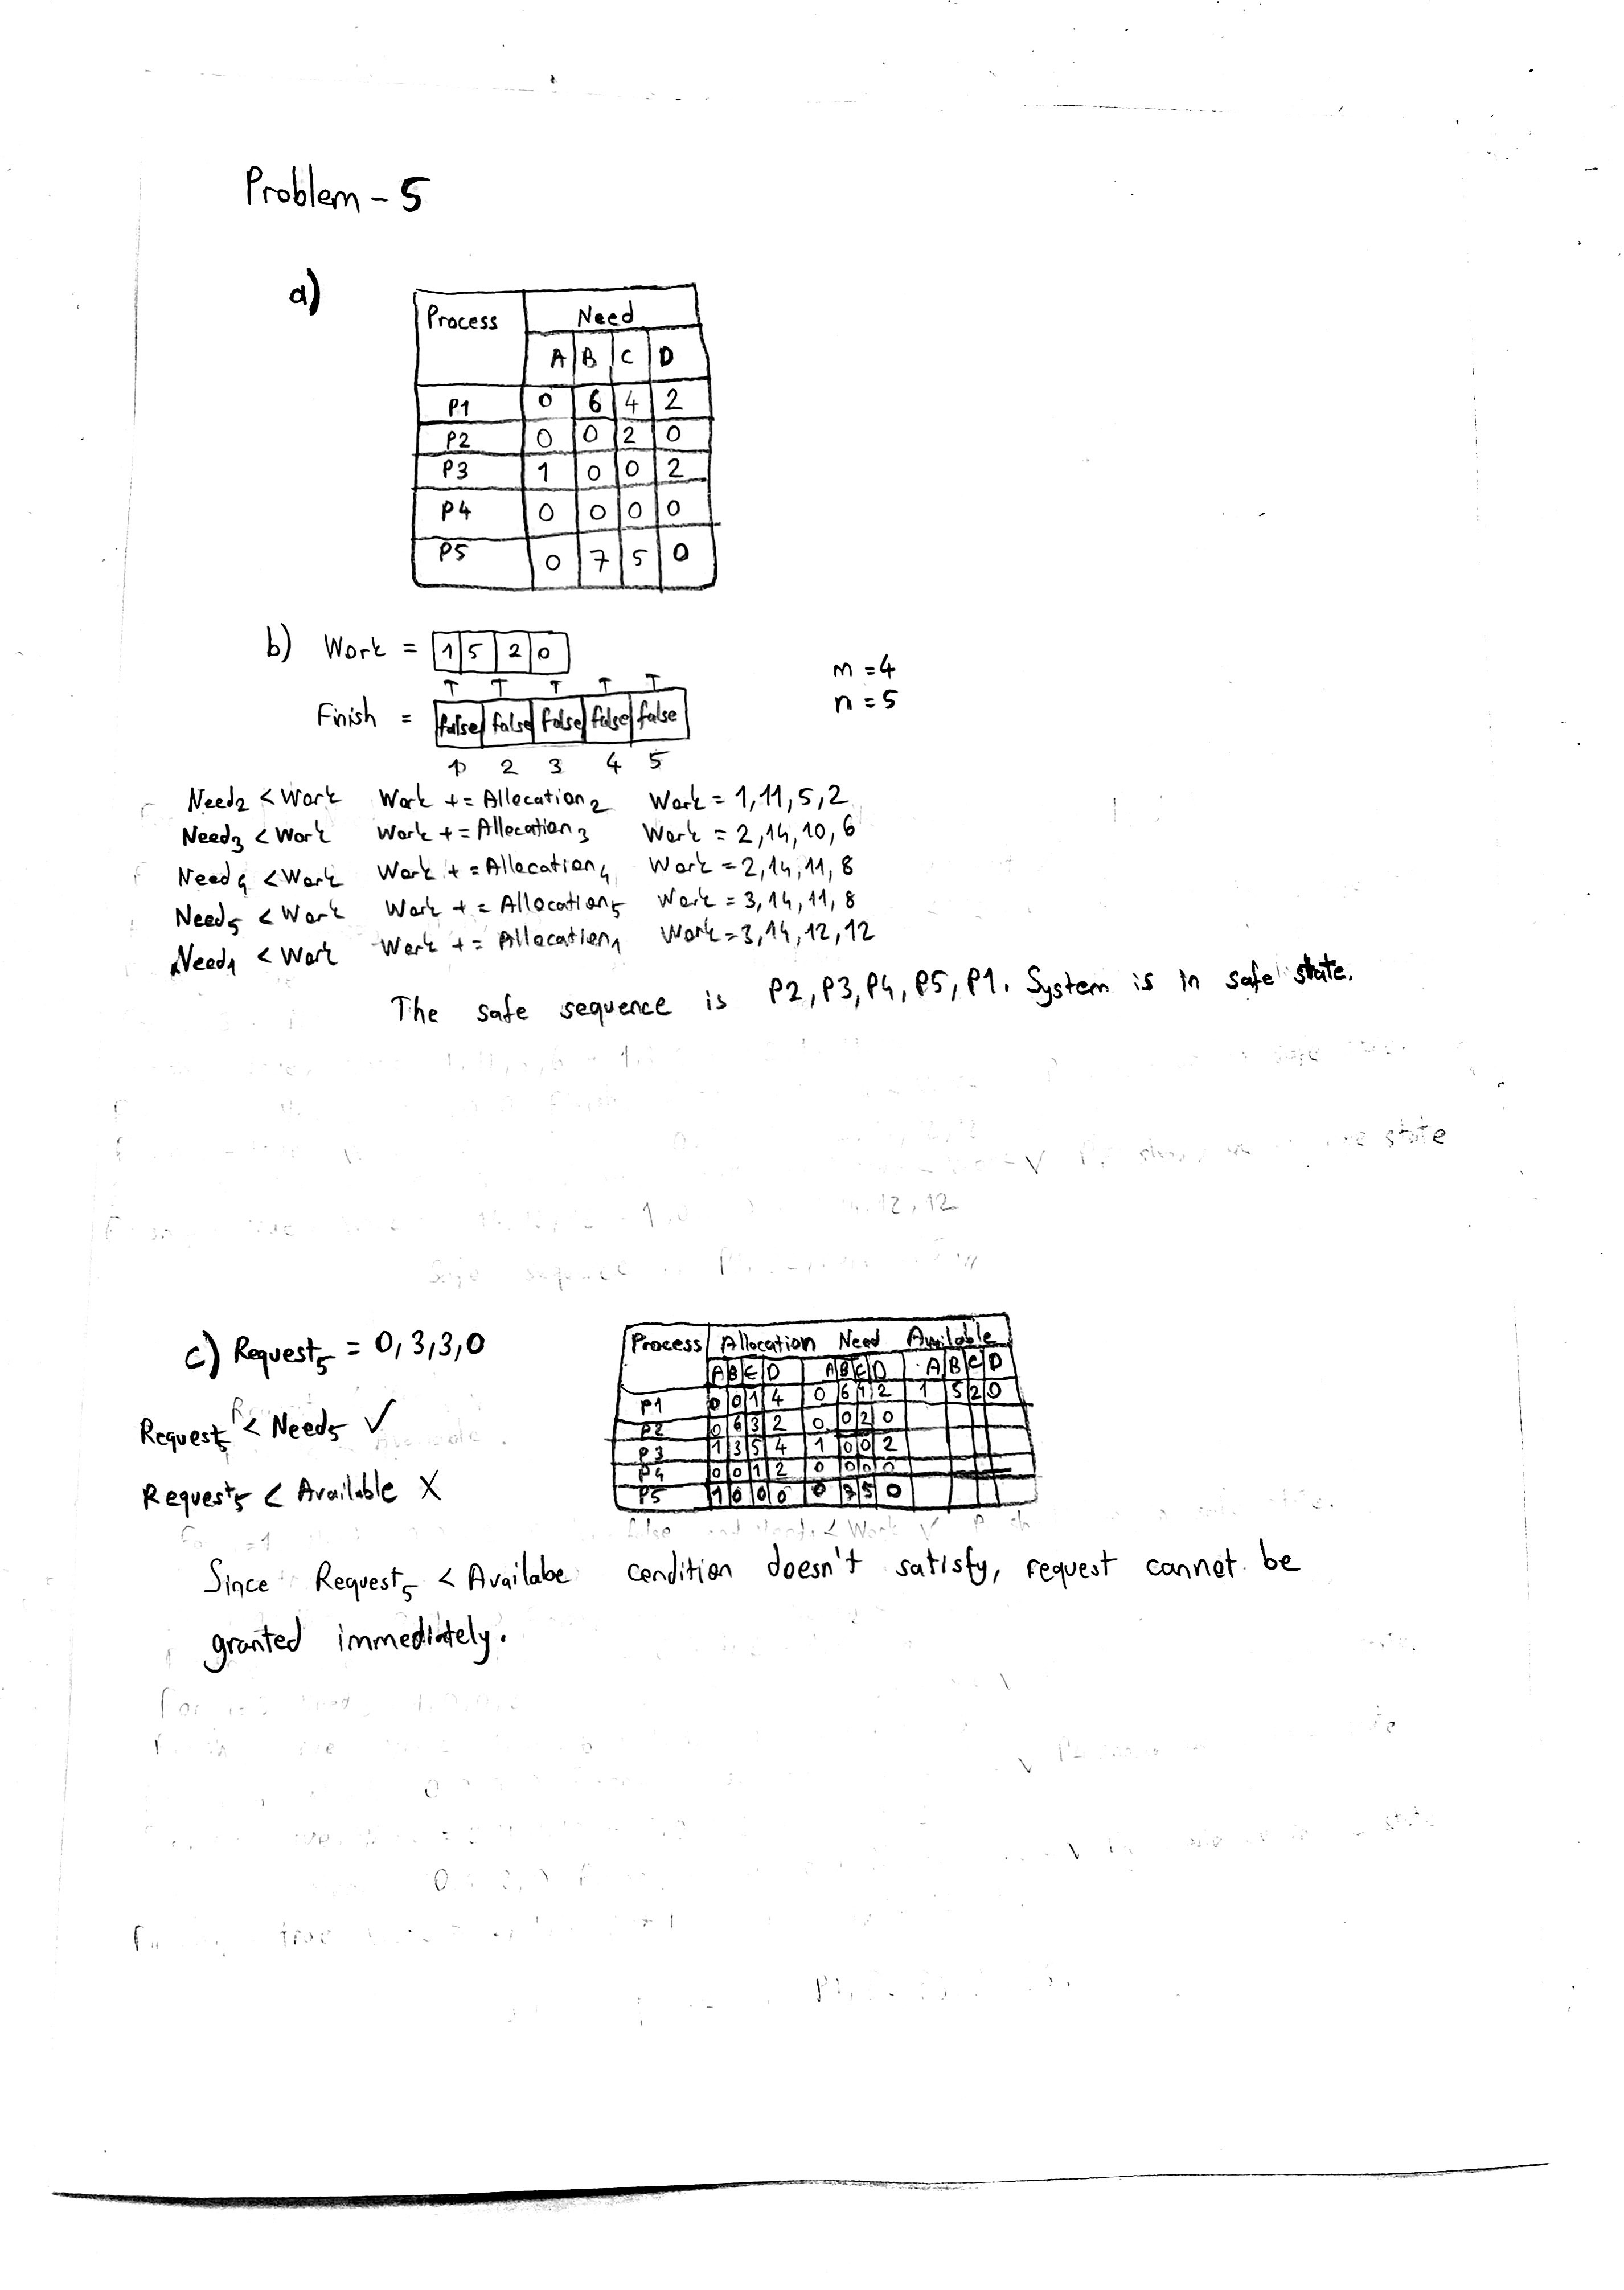 Problem - 5
a)
Process Need
A B C D
P1 0 6 4 2
P2 0 0 2 0
P3 1 0 0 2
P4 0 0 0 0
P5 0 7 5 0
b) Work = 1 5 2 0
m = 4
T T T T T
n = 5
Finish = false false false false false
1 2 3 4 5
Need2 < Work Work += Allocation2 Work = 1,11,5,2
Need3 < Work Work += Allocation3 Work = 2,14,10,6
Need4 < Work Work += Allocation4 Work = 2,14,11,8
Need5 < Work Work += Allocation5 Work = 3,14,11,8
Need1 < Work Work += Allocation1 Work = 3,14,12,12
The safe sequence is P2, P3, P4, P5, P1. System is in safe state.
state
12, 12
c) Request5 = 0,3,3,0
Process Allocation Need Available
A B C D A B C D A B C D
P1 0 0 1 4 0 6 4 2 1 5 2 0
P2 0 6 3 2 0 0 2 0
P3 1 3 5 4 1 0 0 2
P4 0 0 1 2 0 0 0 0
P5 1 0 0 0 0 7 5 0
Request5 < Need5 ✓
Request5 < Available X
Since Request5 < Availabe condition doesn't satisfy, request cannot be
granted immediately.